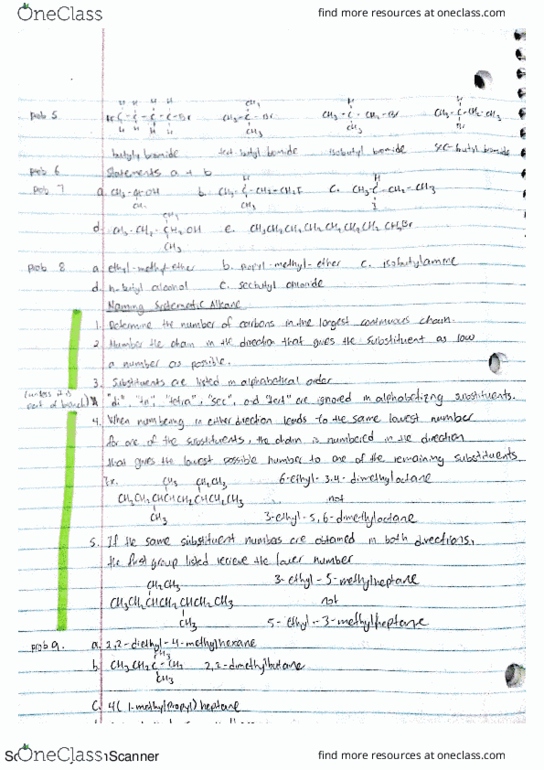 OneClass
find more resources at oneclass.com
prob 5
butyl bromide tert-butyl bromide isobutyl bromide sec-butyl bromide
prob 6 Statements a + b
prob 7 a. b. c.
d. e.
prob 8 a. ethyl-methyl-ether b. propyl-methyl-ether c. isobutylamine
d. n-butyl alcohol c. secbutyl chloride
Naming Systematic Alkane
1. Determine the number of carbons in the largest continuous chain.
2. Number the chain in the direction that gives the substituent as low
a number as possible.
3. Substituents are listed in alphabetical order
(unless it is part of branch) "di", "tri", "tetra", "sec", and "tert" are ignored in alphabetizing substituents.
4. When numbering in either direction leads to the same lowest number
for one of the substituents, the chain is numbered in the direction
that gives the lowest possible number to one of the remaining substituents.
Ex. CH3 CH2CH3 6-ethyl-3,4-dimethyloctane
CH3CH2CHCHCH2CHCH2CH3 not
CH3 3-ethyl-5,6-dimethyloctane
5. If the same substituent numbers are obtained in both directions,
the first group listed recieve the lower number
CH2CH3 3-ethyl-5-methylheptane
CH3CH2CHCH2CHCH2CH3 not
CH3 5-ethyl-3-methylheptane
prob 9. a. 2,2-diethyl-4-methylhexane
CH3
b. CH3CH2C-CH3 2,2-dimethylbutane
CH3
c. 4(1-methylpropyl)heptane
OneClass Scanner
find more resources at oneclass.com